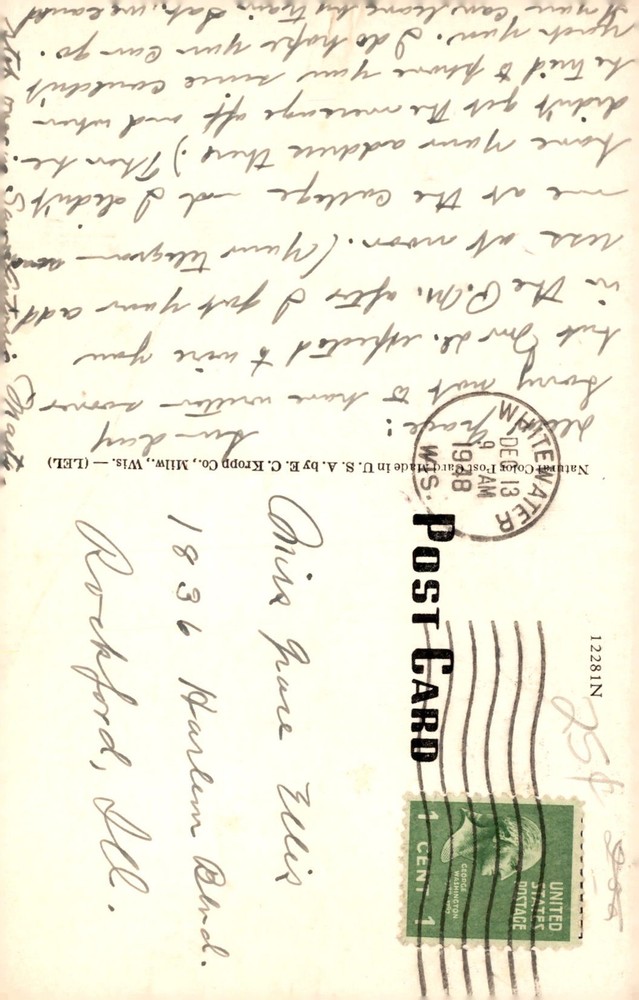 Sunday
Dear Grace:
Sorry not to have written sooner
but expected to wire you
in the P.M. after I got your add
ress at noon. (Your telegram
me at the college and I didn't
have your address there.) Then he
didn't get the message off and when
he tried to phone you since couldn't
reach you. I do hope you can go.
If you can leave by train Sat., we could
Natural Color Post Card Made in U. S. A. by E. C. Kropp Co., Milw., Wis. — (LEL)
POST CARD
WHITEWATER
DEC 13
9 AM
WIS.
12281N
25¢
UNITED
STATES
POSTAGE
GEORGE
WASHINGTON
1 CENT 1
Miss Grace Ellis
1836 Harlem Blvd.
Rockford, Ill.